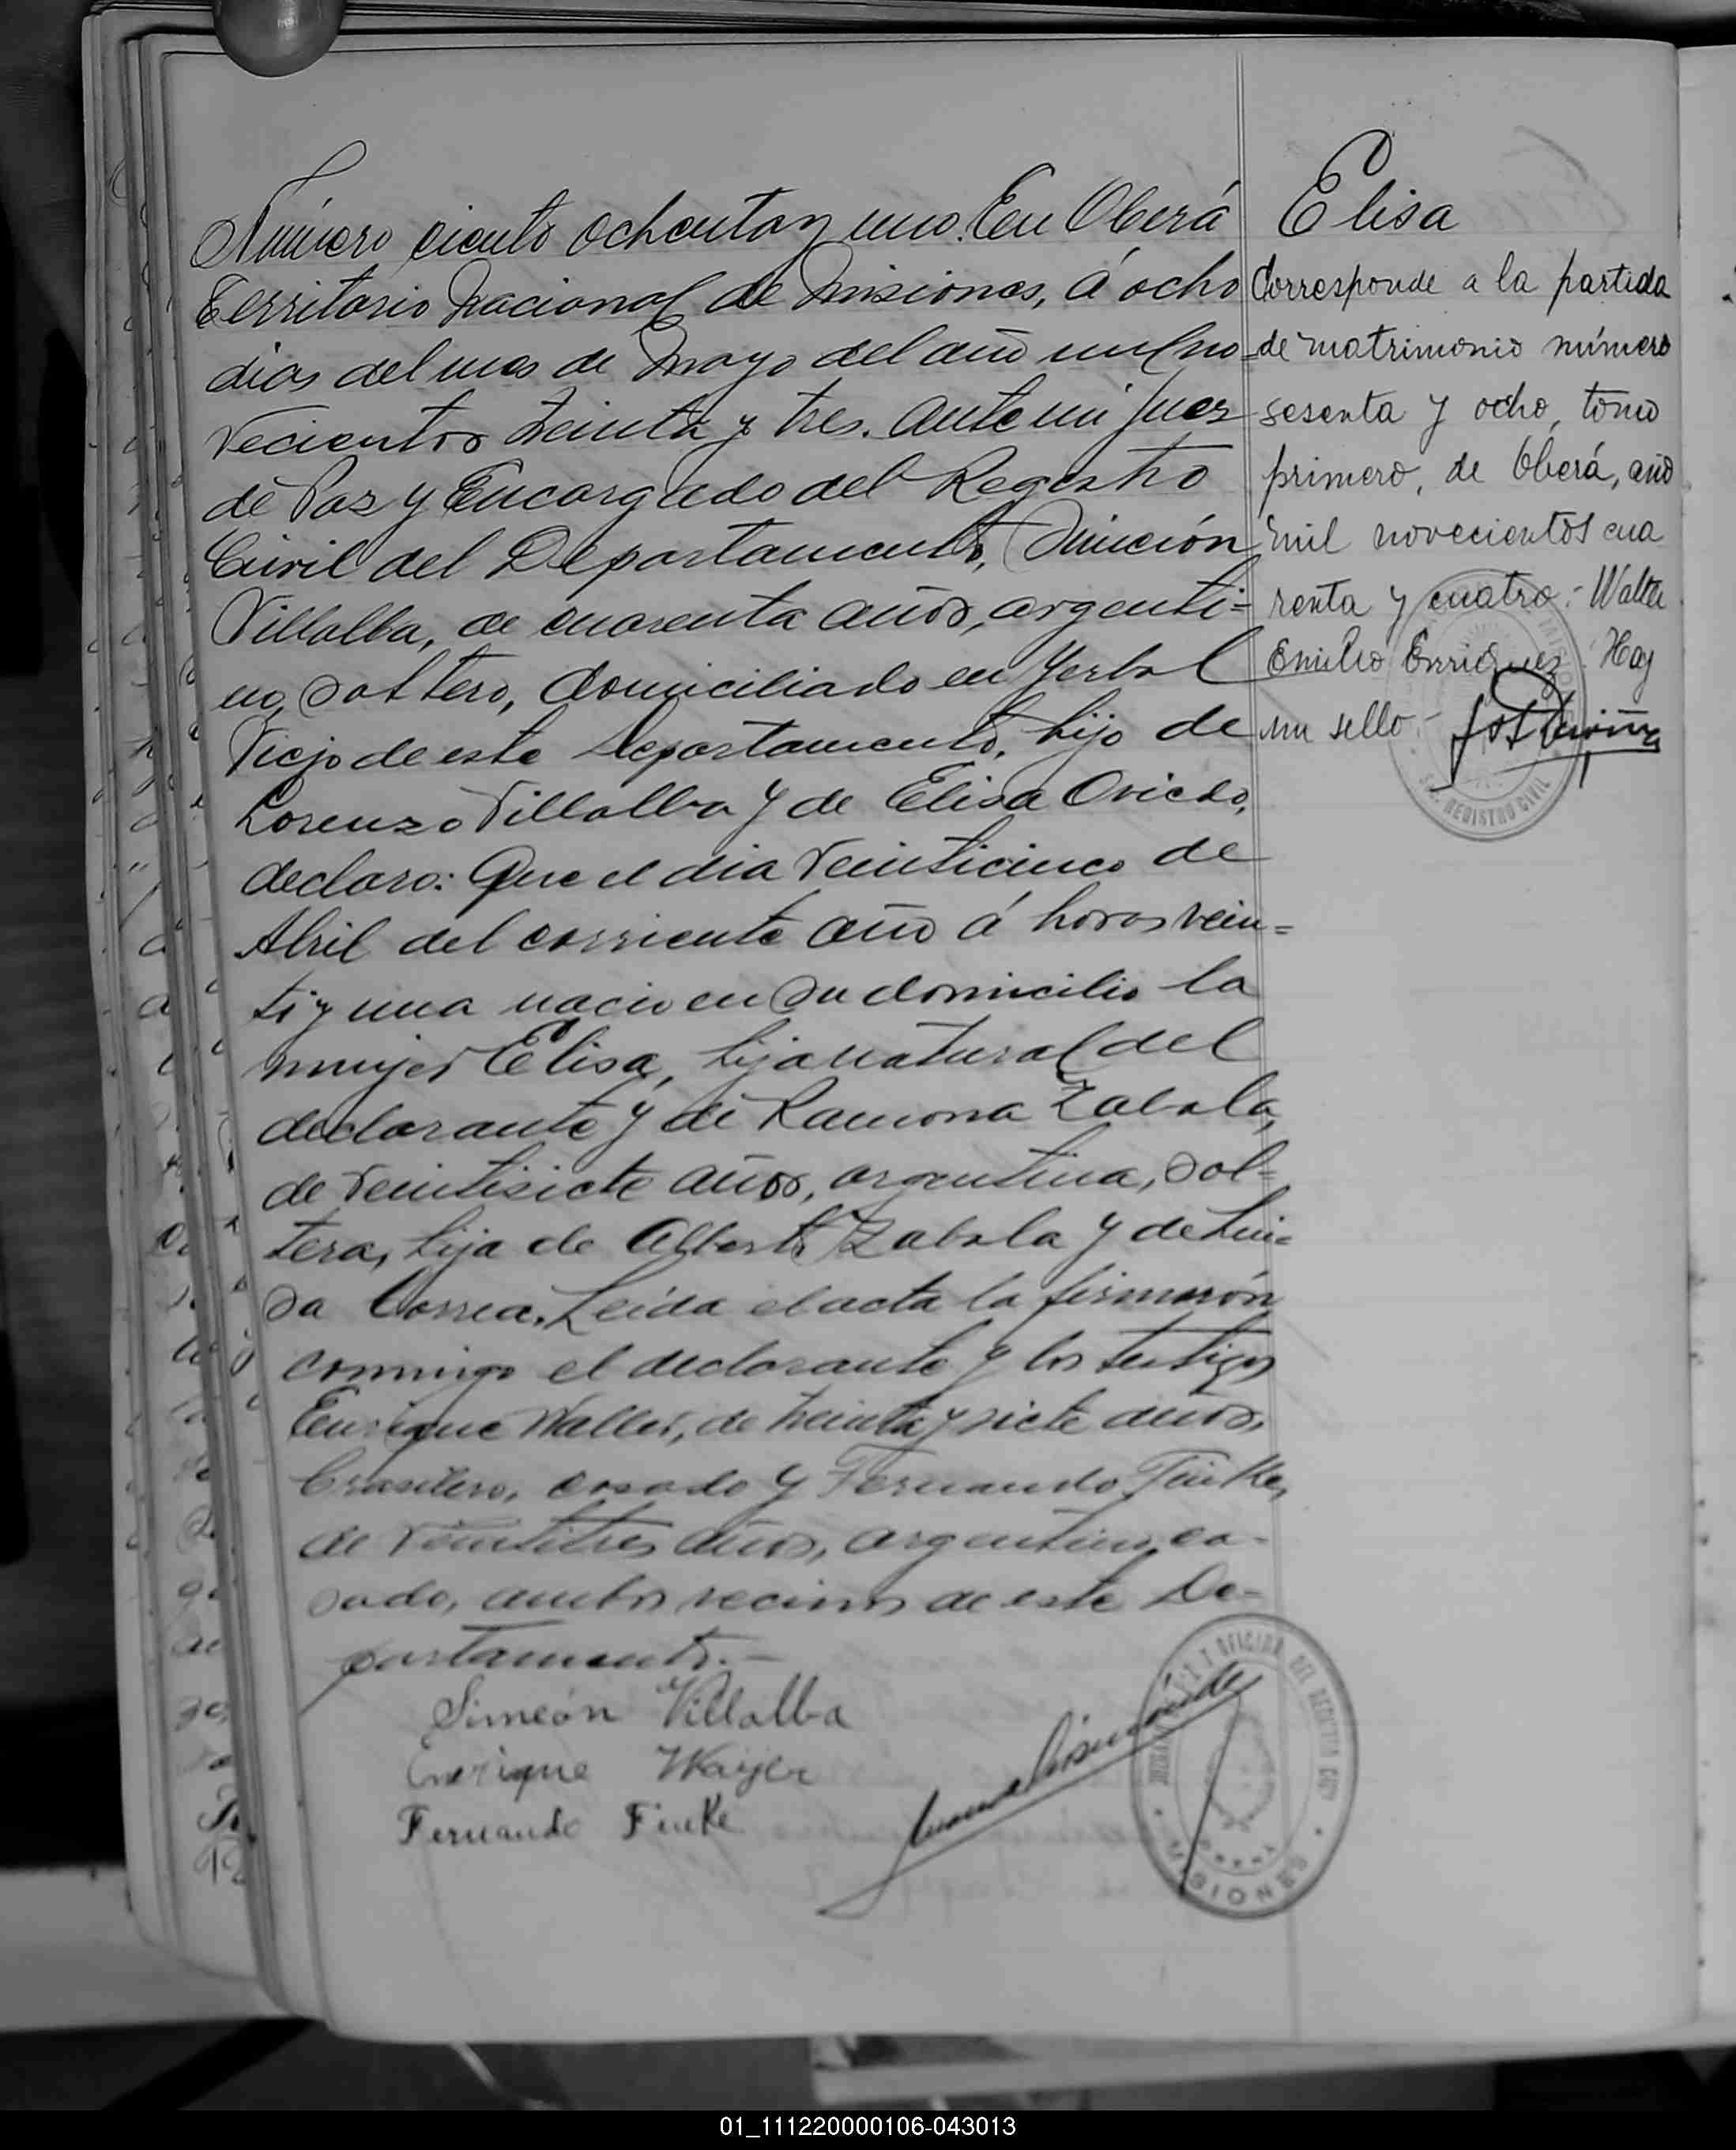 Número ciento ochenta y uno. En Oberá
Territorio Nacional de Misiones, á ocho
dias del mes de Mayo del año mil no-
vecientos treinta y tres. ante mi Juez
de Paz y Encargado del Registro
Civil del Departamento, Simeón
Villalba, de cuarenta años, argenti=
no, soltero, domiciliado en Yerbal
Viejo de este Departamento, hijo de
Lorenzo Villalba y de Elisa Oviedo,
declaro: Que el dia veinticinco de
Abril del corriente año á horas vein=
ti y una nacio en su domicilio la
mujer Elisa, hija natural del
declarante y de Ramona Zabala,
de veintisiete años, argentina, sol-
tera, hija de Alberto Zabala y de
Correa. Leída el acta la firmarón
conmigo el declarante y los testigos
Enrique Waller, de treinta y siete años,
brasilero, casado y Fernando Finke,
de veintitres años, argentino, ca-
sado, ambos vecinos de este De-
partamento.-
Simeón Villalba
Enrique
Fernando Finke
Elisa
Corresponde a la partida
de matrimonio número
sesenta y ocho, tomo
primero, de Oberá, año
mil novecientos cua
renta y cuatro.- Walter
Emilio Enriquez. Hay
un sello.-
REGISTRO CIVIL
OFICINA DEL REGISTRO CIVIL
MISIONES
01_111220000106-043013